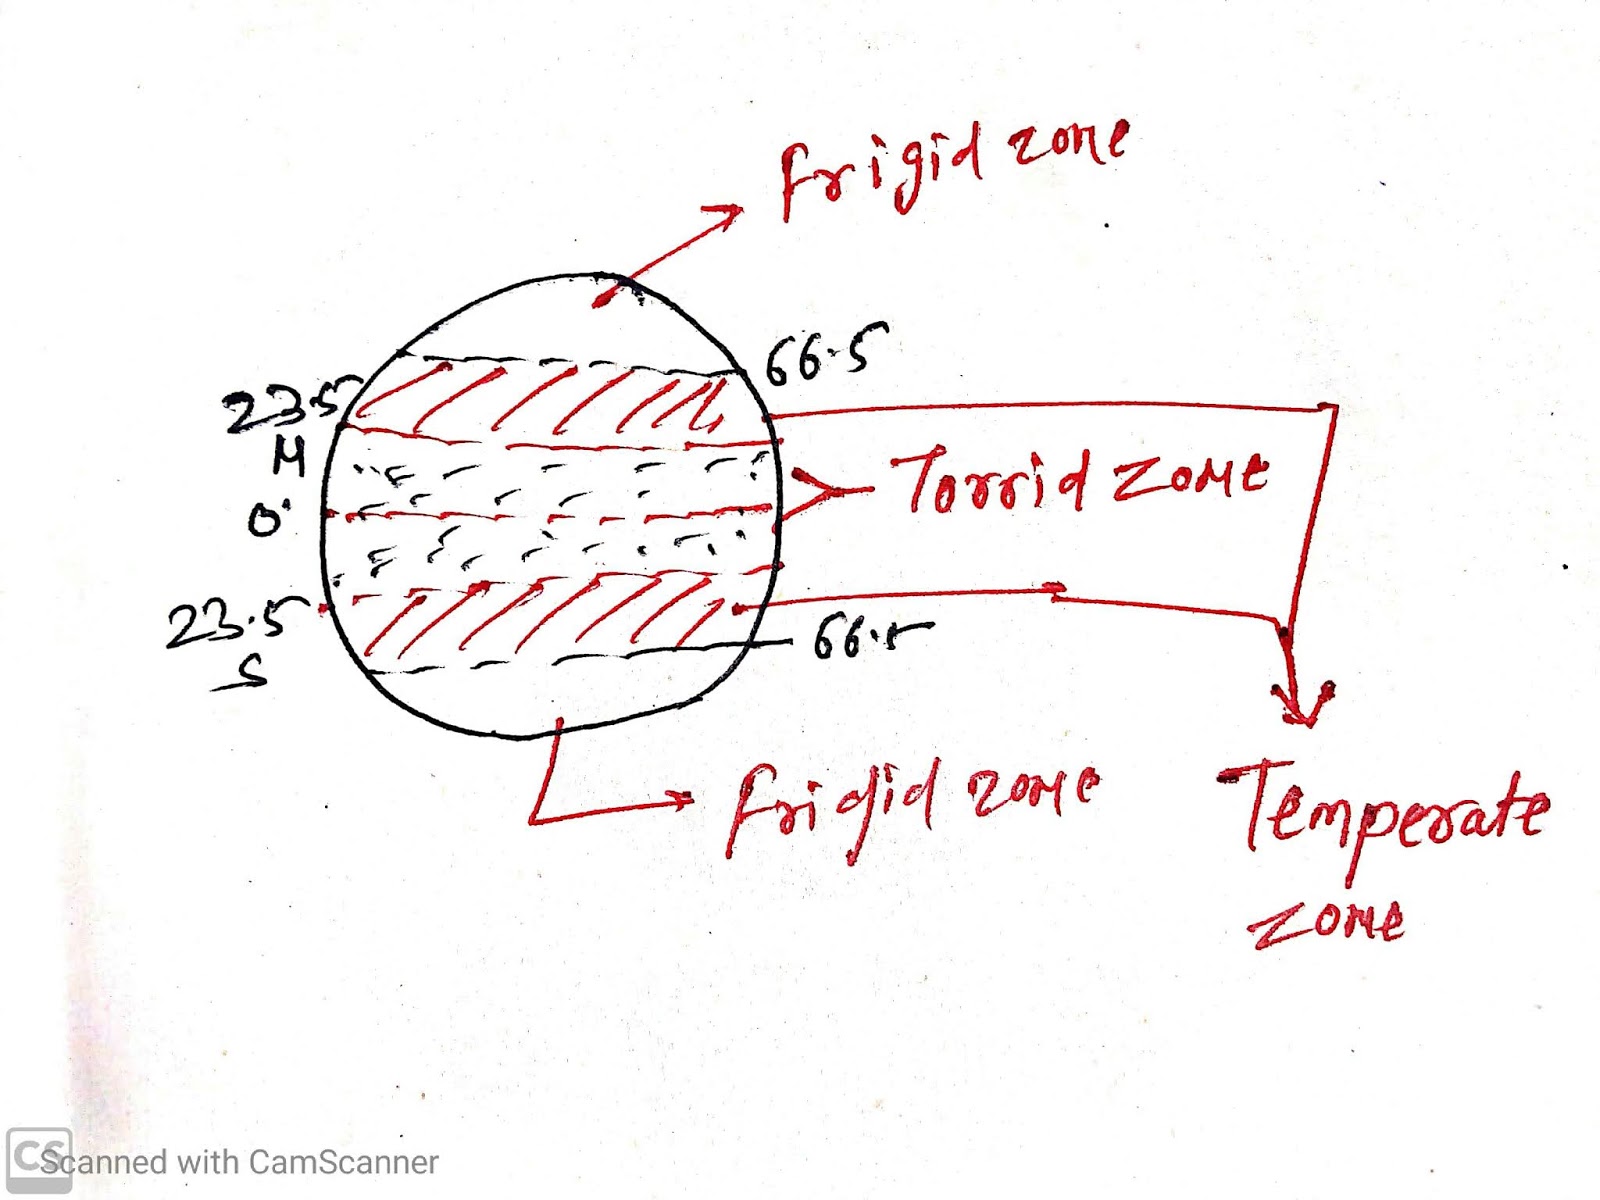 frigid zone
66.5
23.5
N
Torrid zone
0°
23.5
S
66.5
frigid zone
Temperate
zone
CS
Scanned with CamScanner